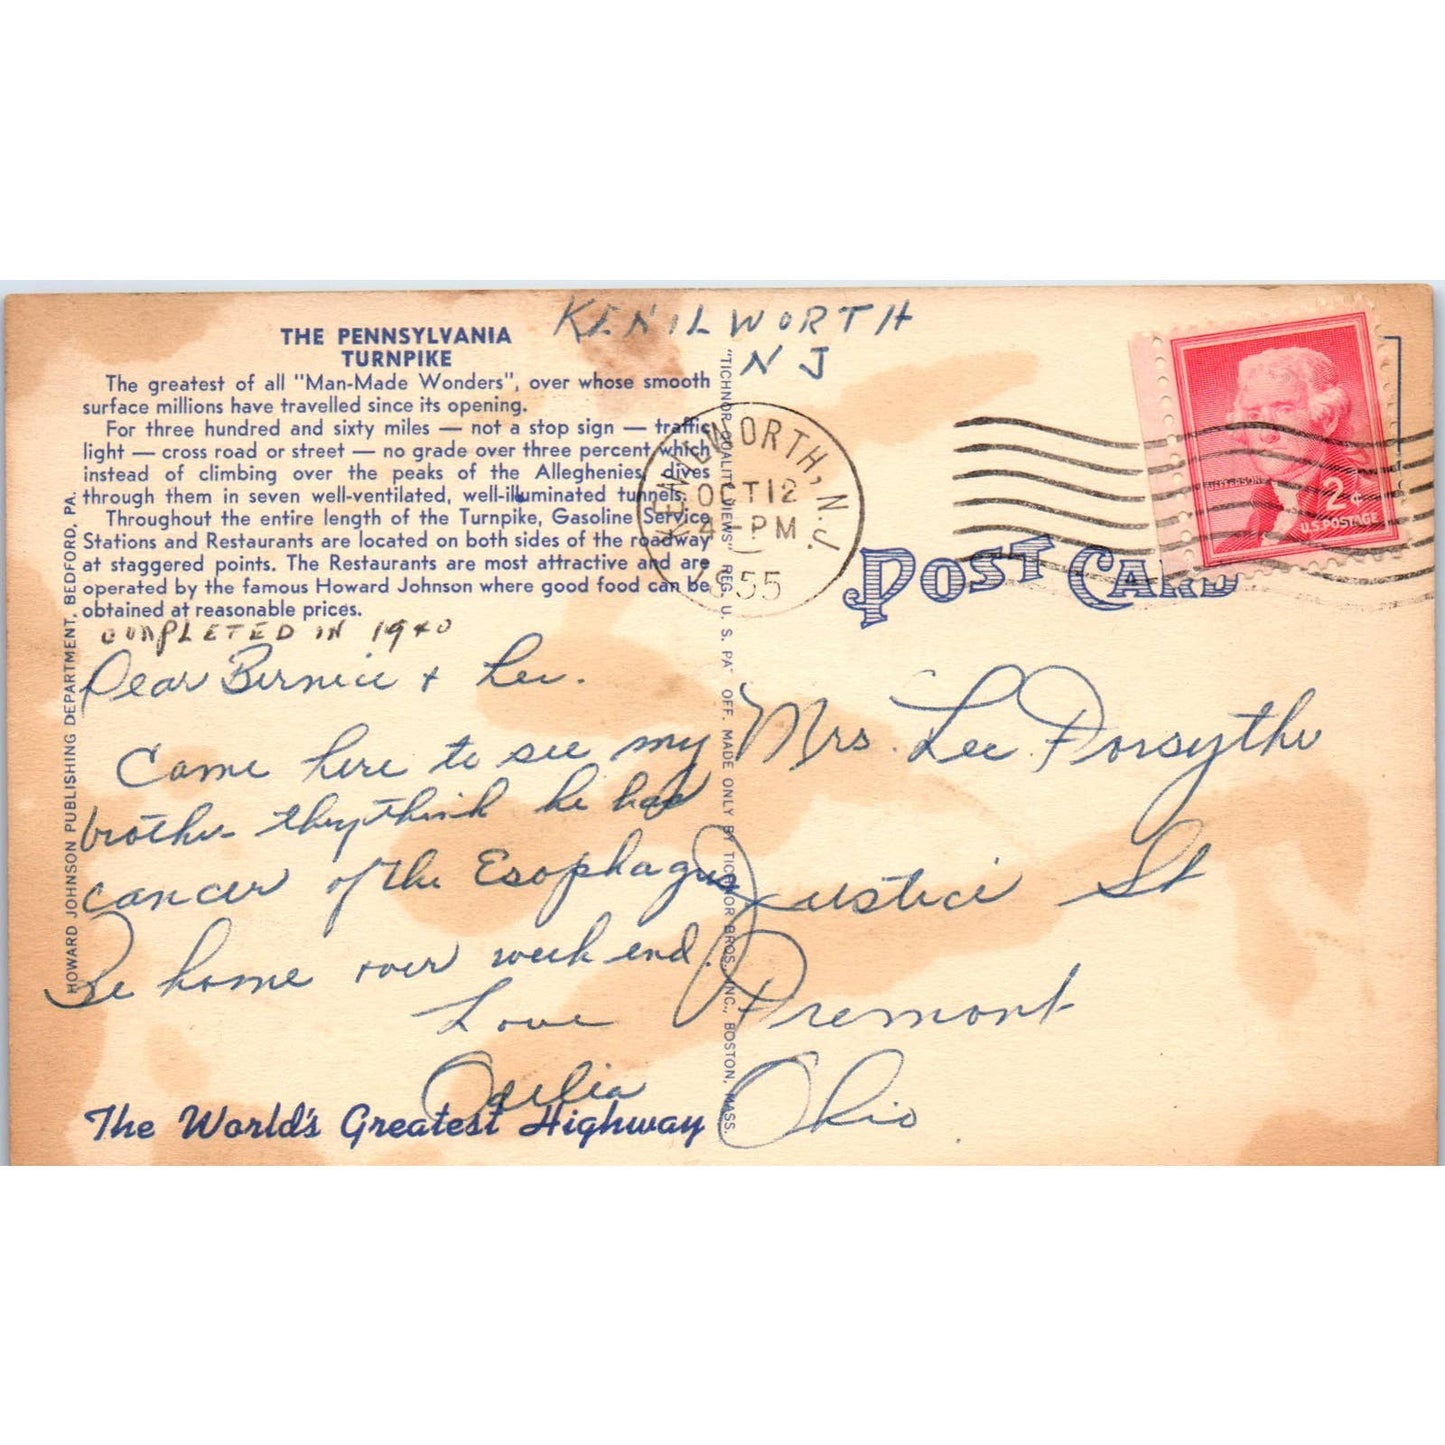 KENILWORTH
NJ
THE PENNSYLVANIA
TURNPIKE
The greatest of all "Man-Made Wonders", over whose smooth
surface millions have travelled since its opening.
For three hundred and sixty miles — not a stop sign — traffic
light — cross road or street — no grade over three percent which
instead of climbing over the peaks of the Alleghenies, dives
through them in seven well-ventilated, well-illuminated tunnels.
Throughout the entire length of the Turnpike, Gasoline Service
Stations and Restaurants are located on both sides of the roadway
at staggered points. The Restaurants are most attractive and are
operated by the famous Howard Johnson where good food can be
obtained at reasonable prices.
COMPLETED IN 1940
Dear Bernice + Lee.
Came here to see my
brother they think he has
cancer of the Esophagus
Be home over week end.
Love
The World's Greatest Highway
HOWARD JOHNSON PUBLISHING DEPARTMENT, BEDFORD, PA.
"TICHNOR QUALITY VIEWS" REG. U. S. PAT. OFF. MADE ONLY BY TICHNOR BROS., INC., BOSTON, MASS.
KENILWORTH, N.J.
OCT 12
4 - PM
1955
JEFFERSON
2¢
U.S. POSTAGE
POST CARD
Mrs. Lee Forsythe
Justice St
Fremont
Ohio.